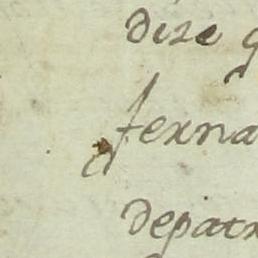 dize q
ferna
depatr